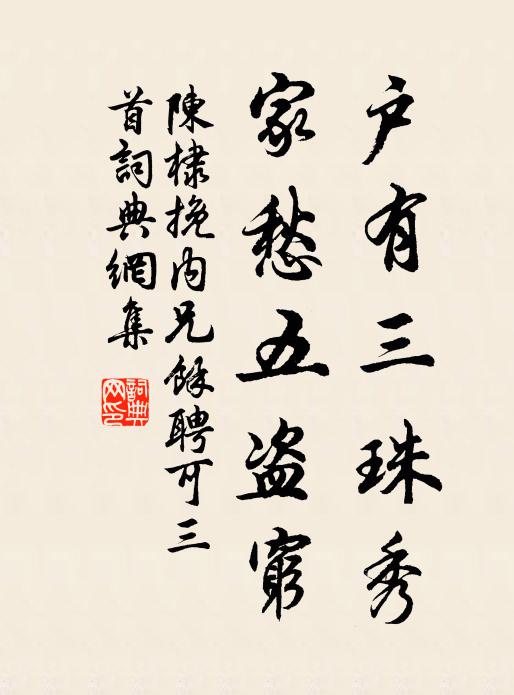 户有三珠秀
家愁五盗窮
陳棣挽内兄餘聘可三
首詞典網集
詞典
网印